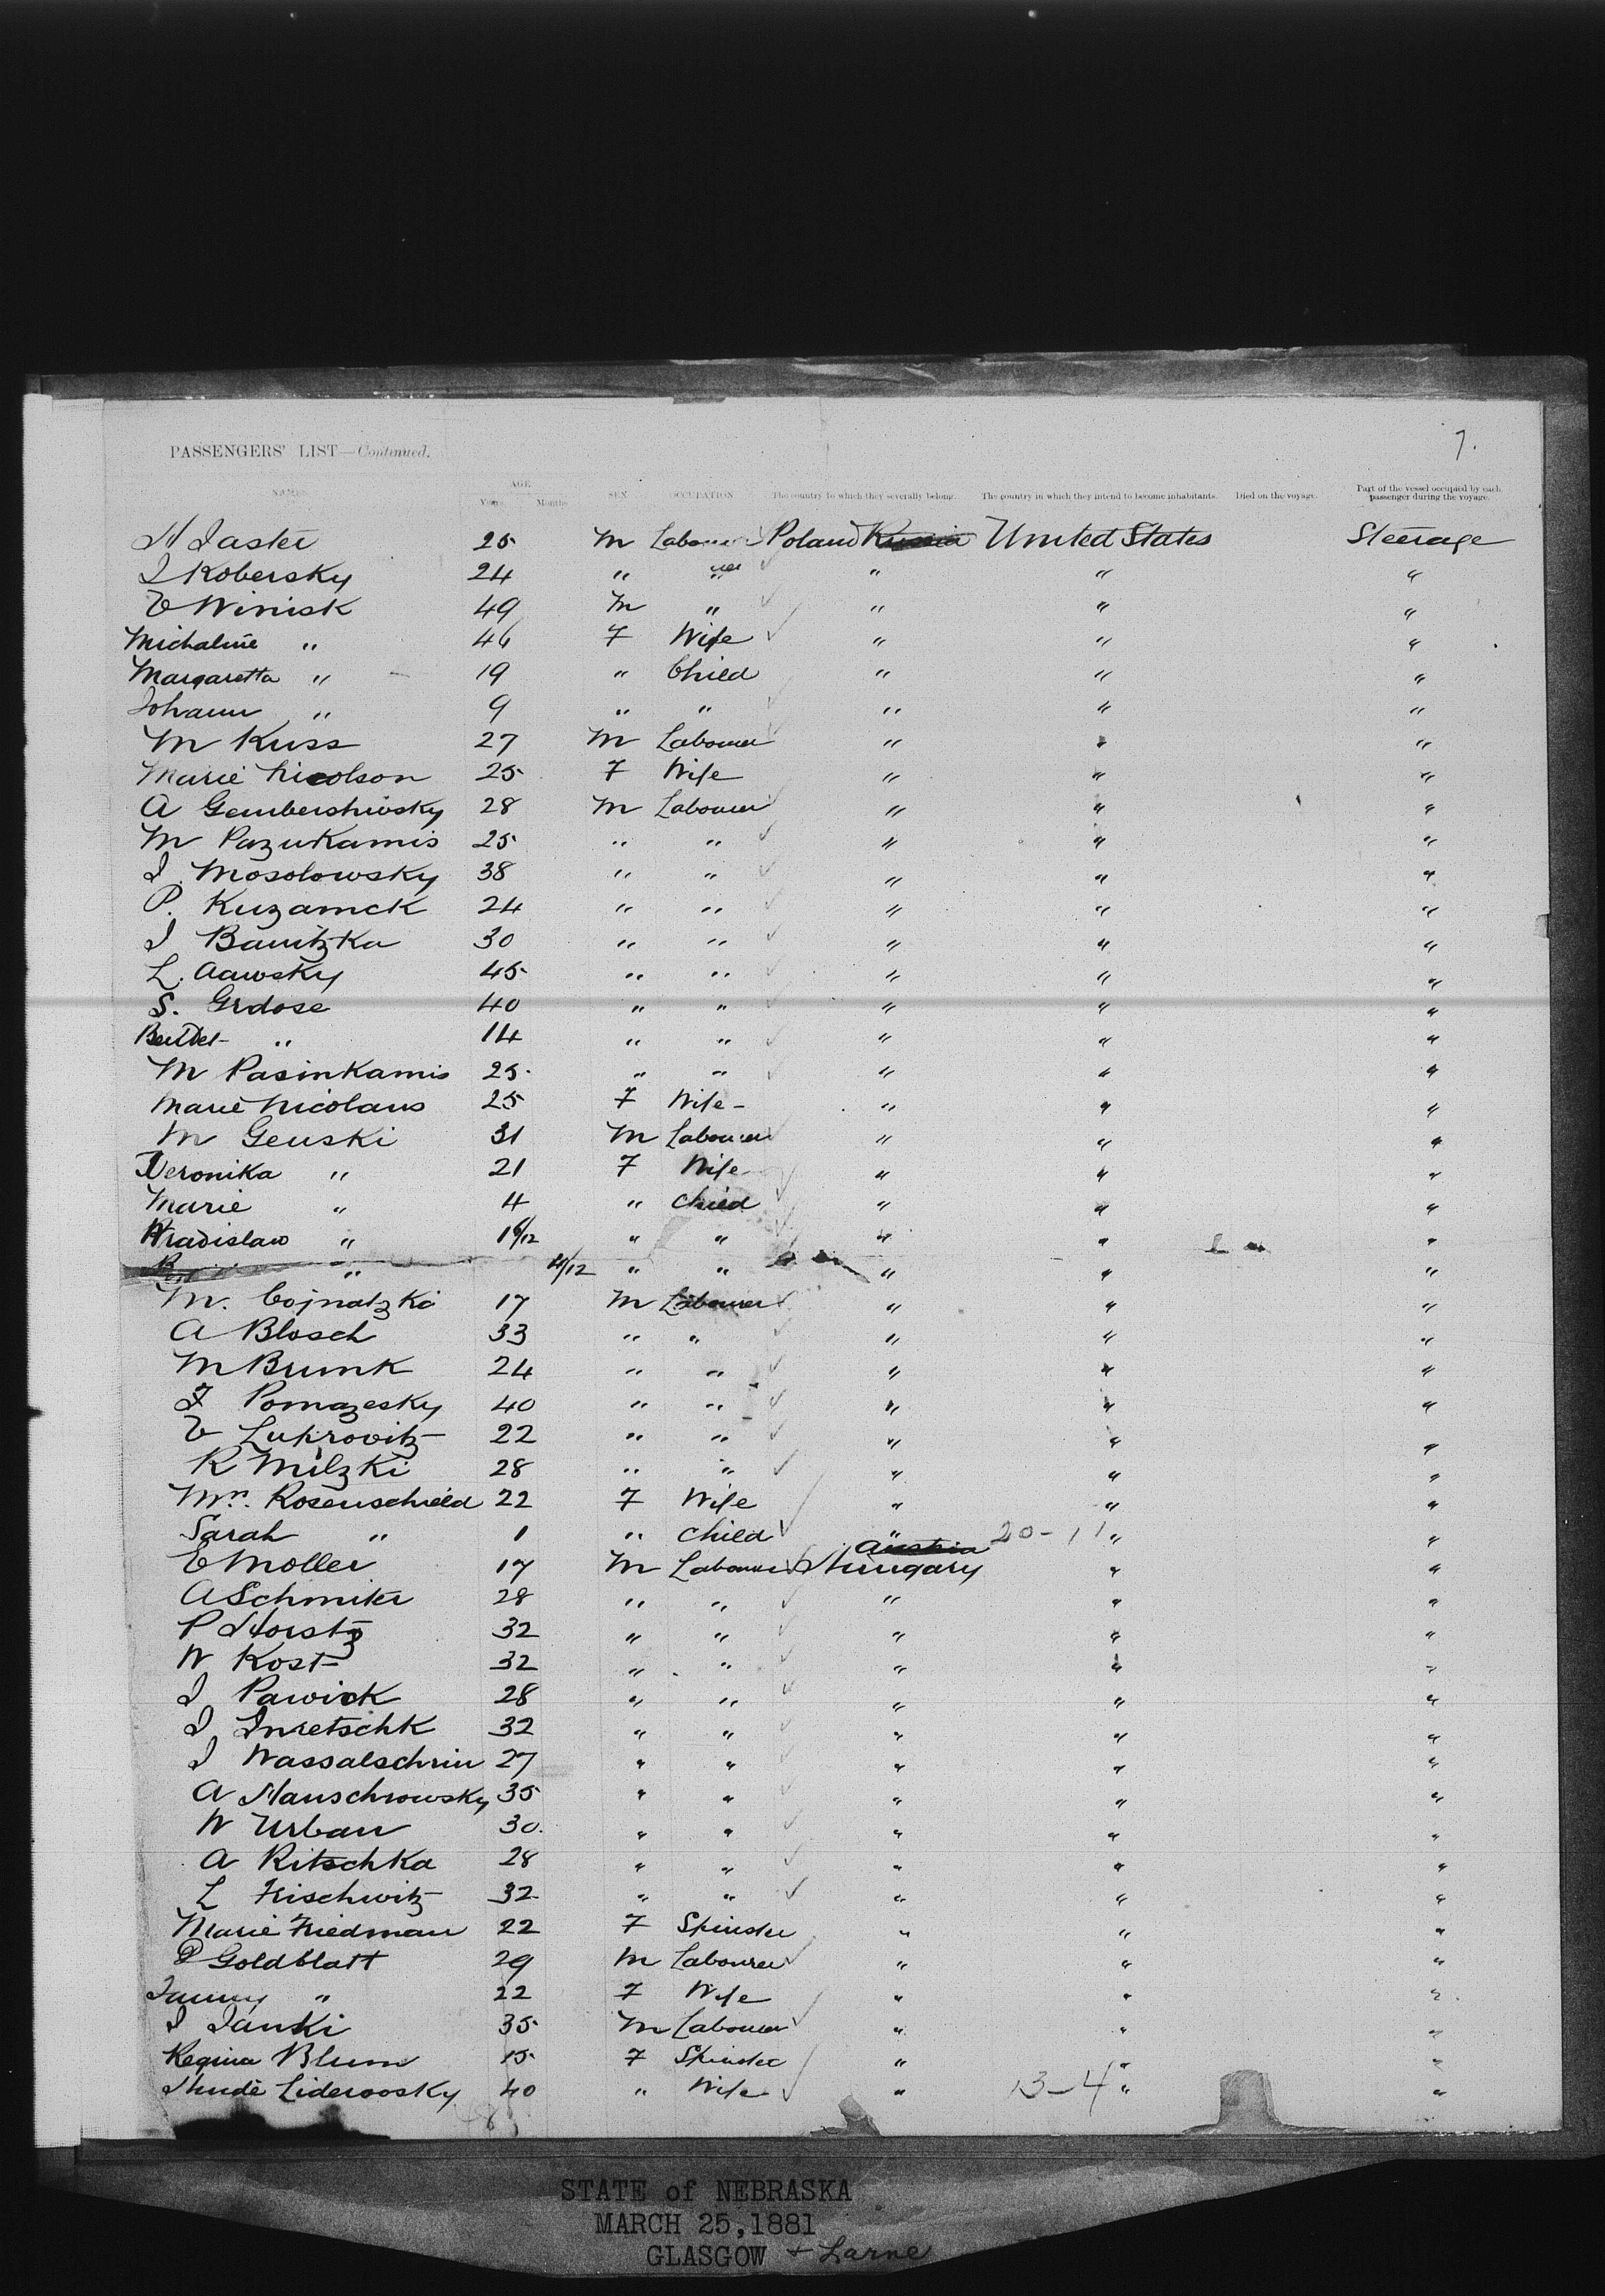 7.
PASSENGERS' LIST—Continued.
NAMES AGE Years Months SEX OCCUPATION The country to which they severally belong. The country in which they intend to become inhabitants. Died on the voyage. Part of the vessel occupied by each passenger during the voyage.
H Jaster 25 M Labourer Poland Russia United States Steerage
I Kobersky 24 " " " " "
E Winisk 49 M " " " "
Michaline " 46 F Wife " " "
Margaretta " 19 " Child " " "
Johann " 9 " " " " "
M Kuss 27 M Labourer " " "
Marie Nicolson 25 F Wife " " "
A Gembershiosky 28 M Labourer " " "
M Pazukamis 25 " " " " "
I Mosolowsky 38 " " " " "
P. Kuzamck 24 " " " " "
I Banitzka 30 " " " " "
L. Aawsky 45 " " " " "
S. Grdose 40 " " " " "
" 14 " " " " "
M Pasinkamis 25 " " " " "
Marie Nicolaus 25 F Wife - " " "
M Genski 31 M Labourer " " "
Veronika " 21 F Wife " " "
Marie " 4 " Child " " "
Wradislaw " 1 6/12 " " " " "
" 10/12 " " " " "
M. Cojnatzki 17 M Labourer " " "
A Blosch 33 " " " " "
M Brumk 24 " " " " "
F Pomazesky 40 " " " " "
E Lukrovitz 22 " " " " "
K Milzki 28 " " " " "
Mrs. Rosenschield 22 F Wife " " "
Sarah " 1 " Child " 20-11 " "
E Moller 17 M Labourer Austria Hungary " "
A Schmiter 28 " " " " "
P Horstz 32 " " " " "
W Kost 32 " " " " "
I Pawick 28 " " " " "
I Inretschk 32 " " " " "
I Wassalschrin 27 " " " " "
A Hauschrowsky 35 " " " " "
W Urban 30 " " " " "
A Ritschka 28 " " " " "
L Frischwitz 32 " " " " "
Marie Friedman 22 F Spinster " " "
P Goldblatt 29 M Labourer " " "
Fanny " 22 F Wife " " "
I Janki 35 M Labourer " " "
Regina Blum 15 F Spinster " " "
Liderovsky 40 " Wife " 13-4 " "
STATE of NEBRASKA
MARCH 25,1881
GLASGOW + Larne